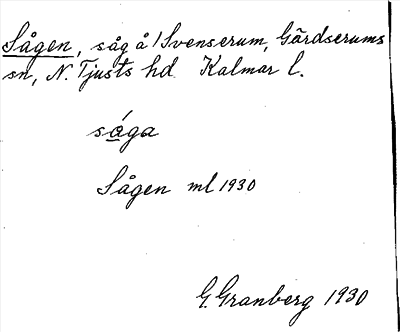 Sågen, såg å / Svenserum, Gärdserums
sn, N. Tjusts hd. Kalmar l.
såga
Sågen ml 1930
G. Granberg 1930